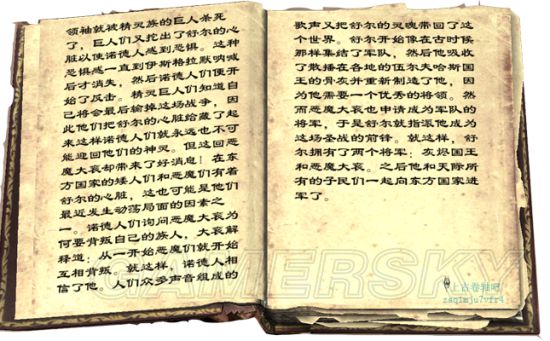 领袖就被精灵族的巨人杀死
了，巨人们又挖出了舒尔的心
脏以使诺德人感到恐惧。这种
恐惧感一直到伊斯格拉默呐喊
后才消失，然后诺德人们便开
始了反击。精灵巨人们知道自
己将会最后输掉这场战争，因
此他们把舒尔的心脏给藏了起
来这样诺德人们就永远也不可
能迎回他们的神灵。但这回恶
魔大衮却带来了好消息！在东
方国家的矮人们和恶魔们有着
舒尔的心脏，这也可能是他们
最近发生动荡局面的因素之
一。诺德人们询问恶魔大衮为
何要背叛自己的族人，大衮解
释道：从一开始恶魔们就开始
互相背叛，就这样，诺德人相
信了他。人们众多声音组成的
歌声又把舒尔的灵魂带回了这
个世界。舒尔开始像在古时候
那样集结了军队，然后他吸收
了散播在各地的伍尔夫哈斯国
王的骨灰并重新制造了他，因
为他需要一个优秀的将领。然
而恶魔大衮也申请成为军队的
将军，于是舒尔就指派他成为
这场圣战的前锋。就这样，舒
尔拥有了两个将军：灰烬国王
和恶魔大衮。之后他和天际所
有的子民们一起向东方国家进
军了。
GAMERSKY
上古卷轴吧
zsq1mju7vfr4